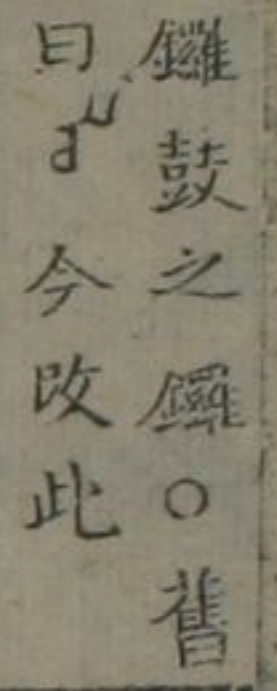 鑼鼓之鑼○舊
曰今改此